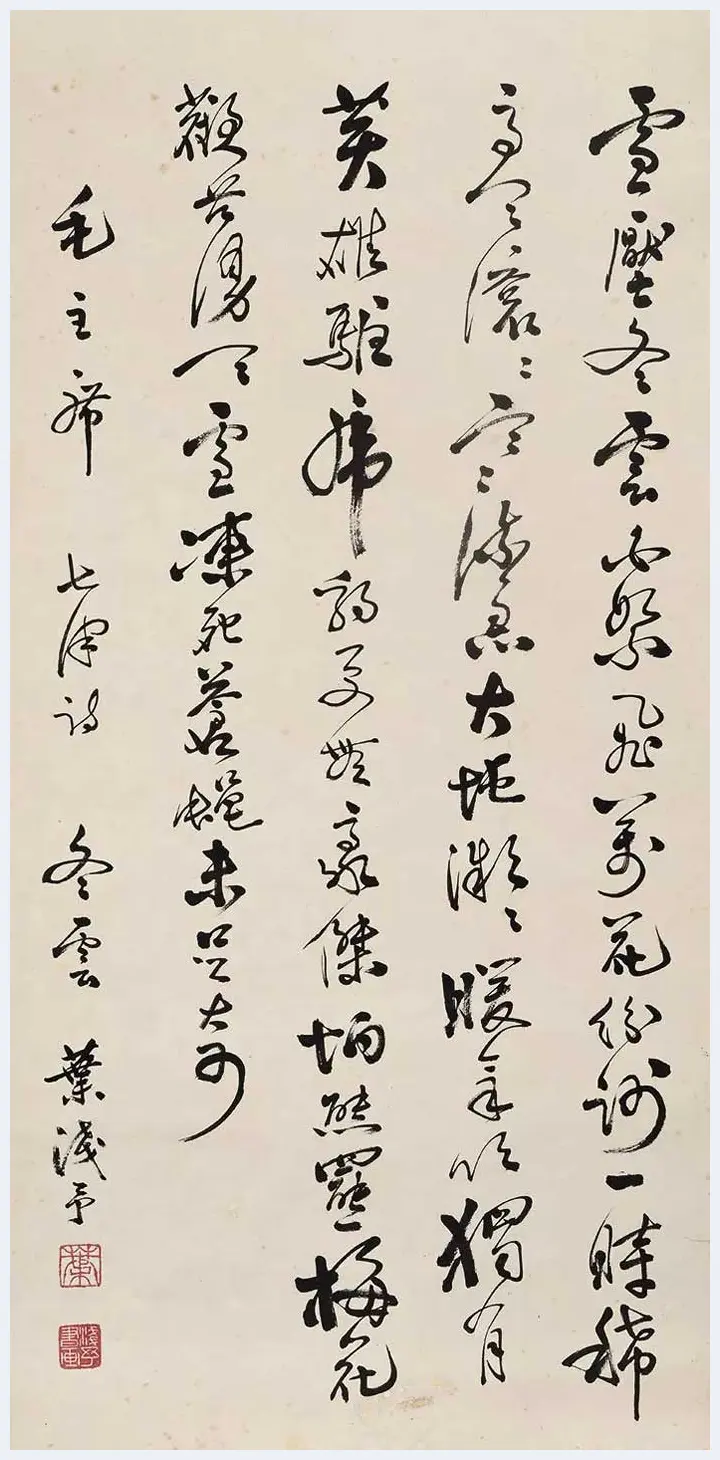 雪壓冬雲白絮飛萬花紛謝一時稀
高天滚〻寒流急大地微〻暖氣吹獨有
英雄驅虎豹更無豪傑怕熊羆梅花
歡喜漫天雪凍死蒼蠅未足奇
毛主席 七律詩 冬雲 葉淺予
葉
淺予書畫